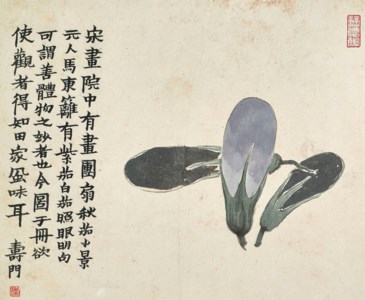 宋畫院中有畫團扇秋茄小景
元人馬東籬有紫茄白茄照眼明句
可謂善體物之妙者也今圖于冊欲
使觀者得知田家風味耳
壽門